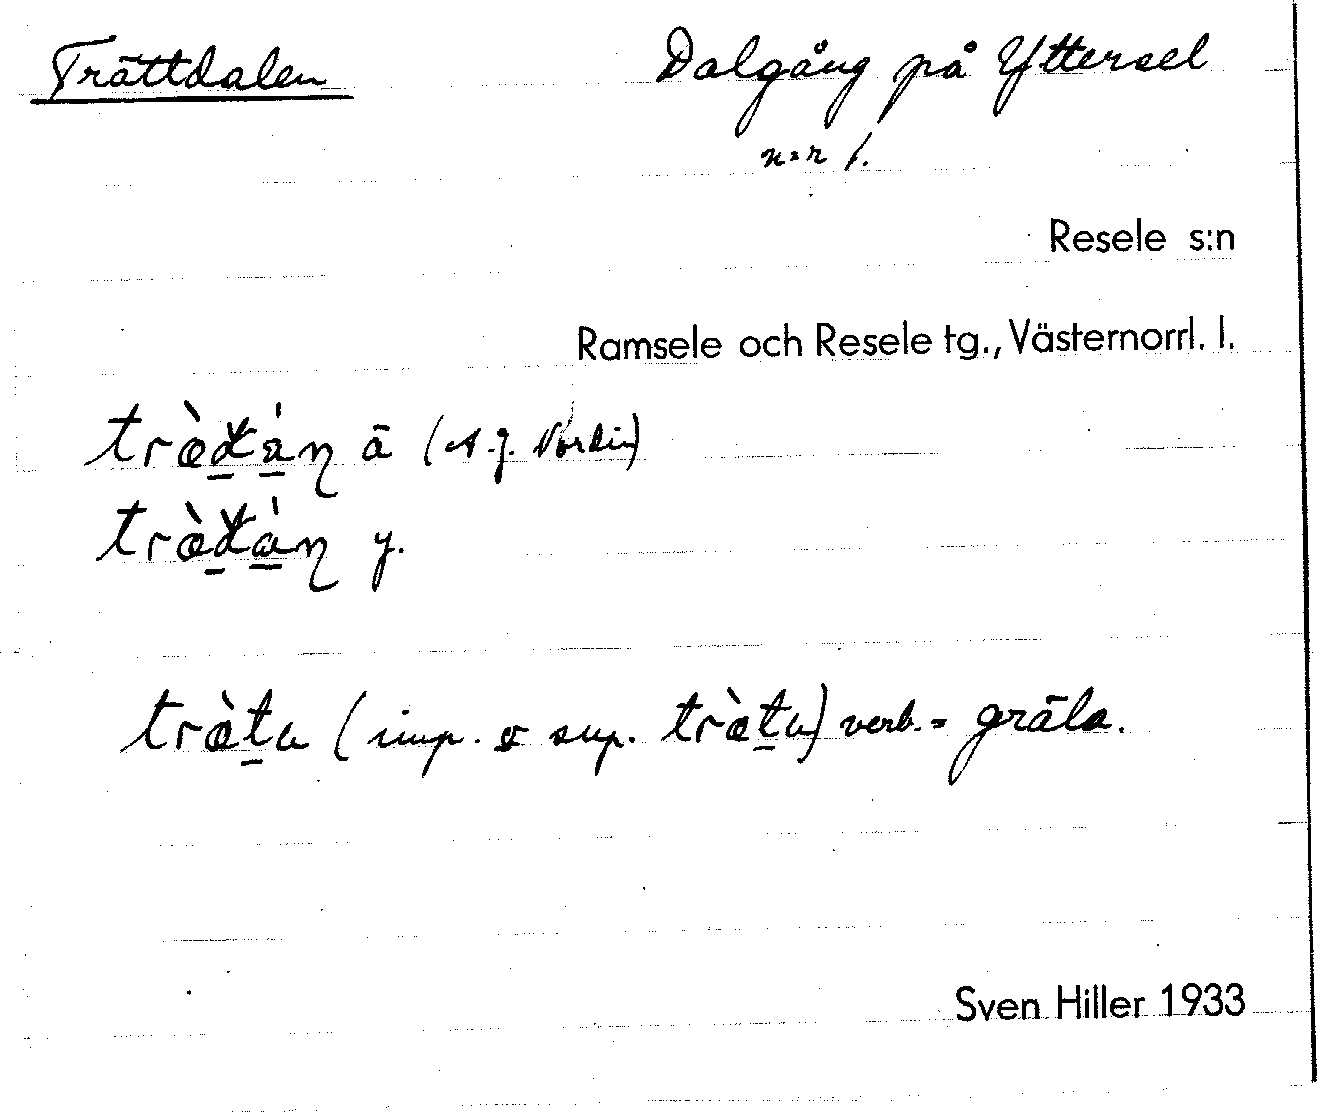 Trättdalen Dalgång på Yttersel
n:r 1.
Resele s:n
Ramsele och Resele tg., Västernorrl. l.
ā (A. J. Nordin)
y.
(imp. & sup. ) verb. = gräla.
Sven Hiller 1933